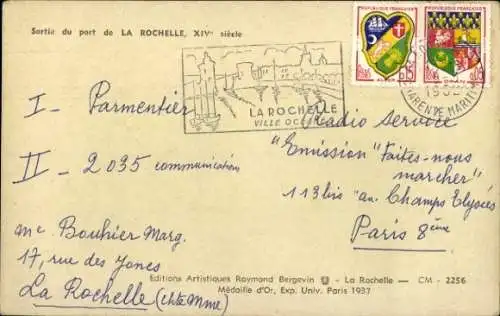 Sortie du port de LA ROCHELLE, XIVe siècle
REPUBLIQUE FRANÇAISE
REPUBLIQUE FRANÇAISE
0,15
0,05
LA ROCHELLE
VILLE
CHARENTE MARITIME
I - Parmentier
II - 2035 communication
Mc Bouhier Marg.
17, rue des Jones
La Rochelle (Chte Mme)
Radio Service
"Emission "Faites-nous
marcher"
113 bis "av. Champs Elysées
Paris 8ème
Editions Artistiques Raymond Bergevin - La Rochelle — CM - 2256
Médaille d'Or, Exp. Univ. Paris 1937